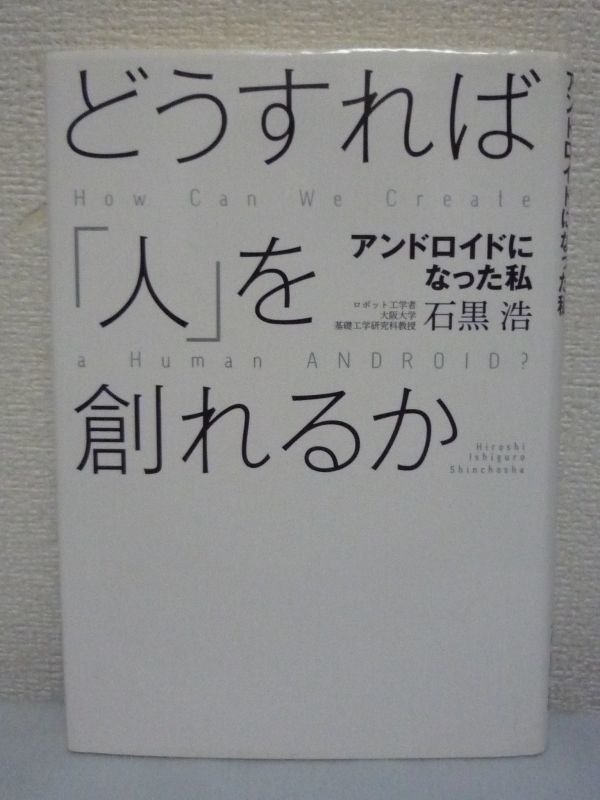 どうすれば
How Can We Create
「人」を
アンドロイドに
なった私
ロボット工学者
大阪大学
基礎工学研究科教授
石黒 浩
a Human ANDROID?
創れるか
Hiroshi
Ishiguro
Shinchosha
アンドロイドになった私